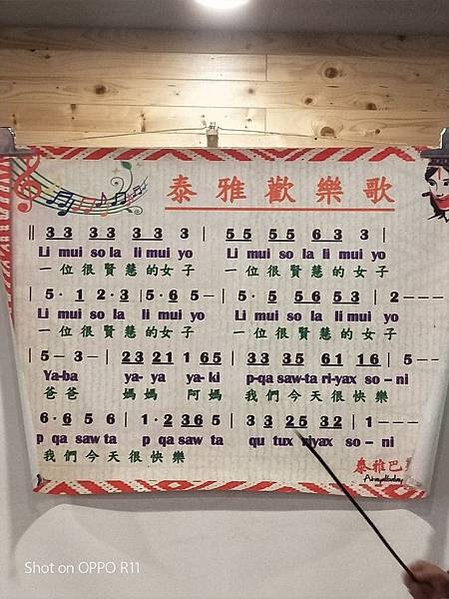 泰雅歡樂歌
‖ 3 3 3 3 3 3 3 | 5 5 5 5 6 3 3 |
Li mui so la li mui yo Li mui so la li mui yo
一位很賢慧的女子 一位很賢慧的女子
5· 1 2·3 | 5·6 5– | 5· 5 5 6 5 3 | 2–––
Li mui so la li mui yo Li mui so la li mui yo
一位很賢慧的女子 一位很賢慧的女子
| 5– 3– | 2 3 2 1 1 6 5 | 3 3 3 5 6 1 1 6 | 5––
Ya-ba ya- ya ya-ki p-qa saw-ta ri-yax so - ni
爸爸 媽媽 阿媽 我們今天很快樂
6·6 5 6 | 1·2 3 6 5 | 3 3 2 5 3 2 | 1–––
p qa saw ta p qa saw ta qu tux riyax so - ni
我們今天很快樂
泰雅巴
Shot on OPPO R11